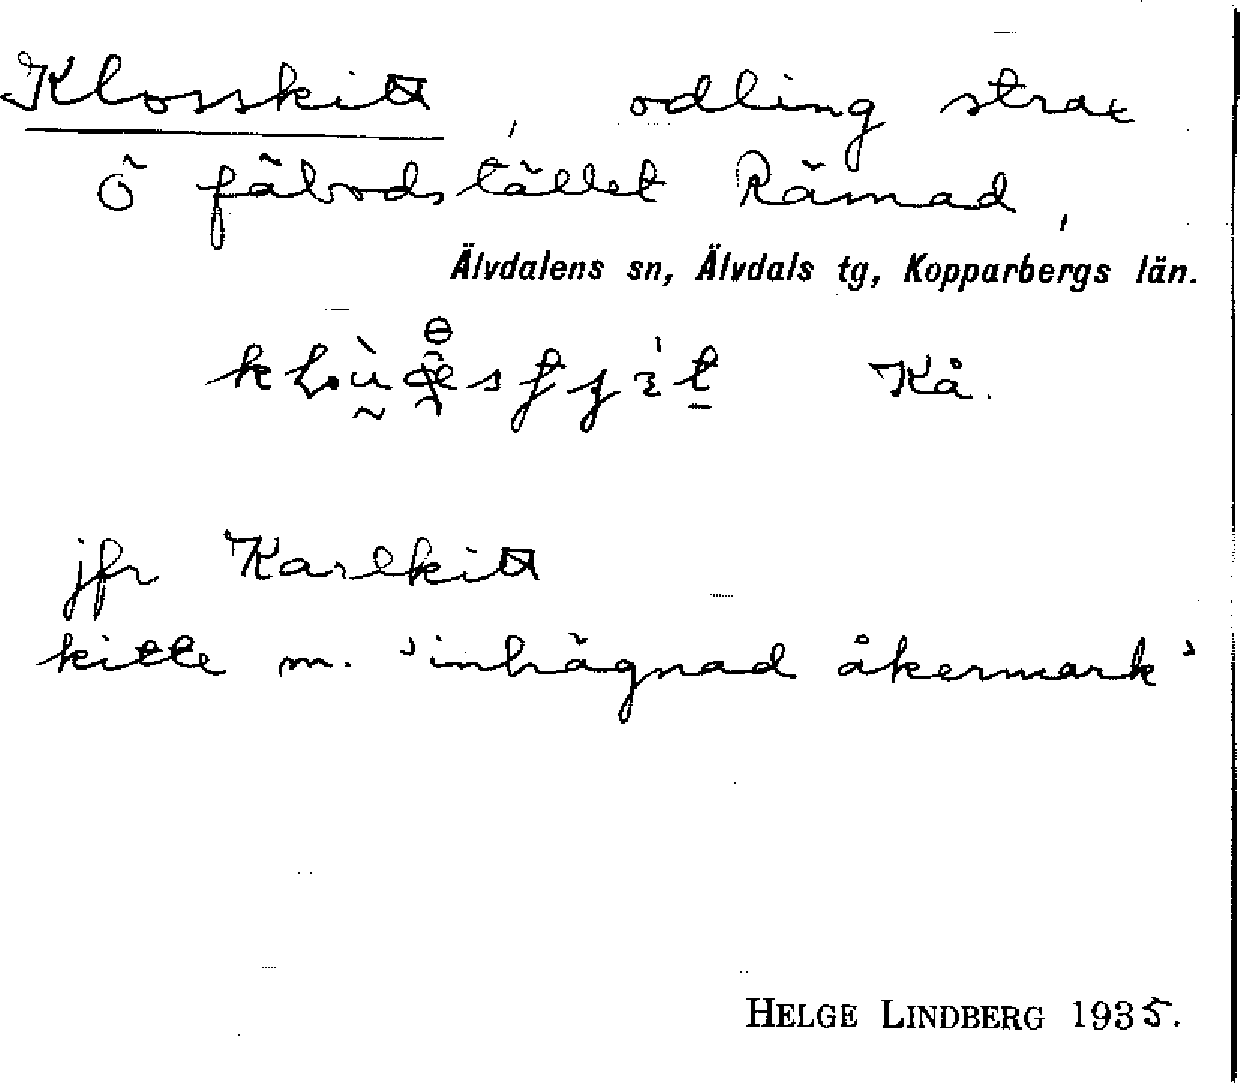 Klosskitt, odling strax
ö fäbodstället Rämad,
Älvdalens sn, Älvdals tg, Kopparbergs län.
Kå.
jfr Karlkitt
kitte m. 'inhägnad åkermark'
HELGE LINDBERG 1935.